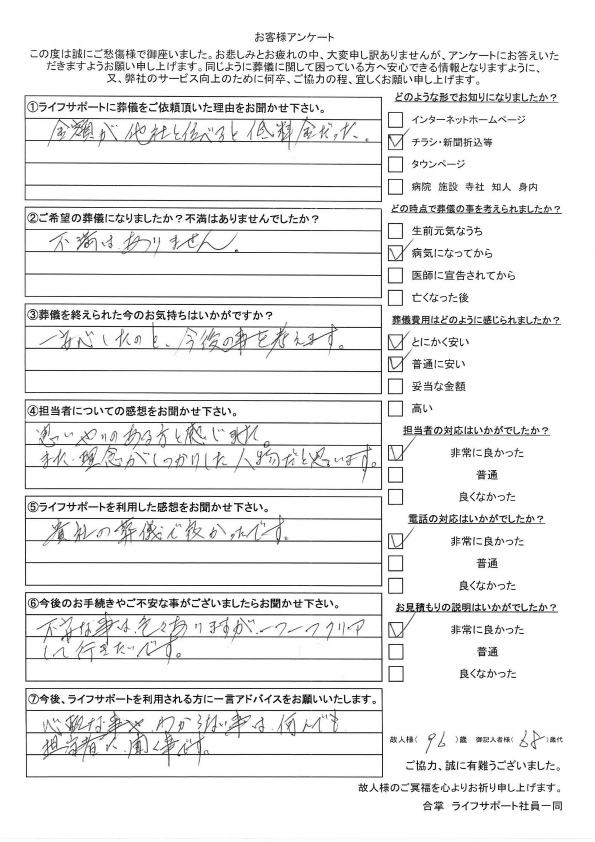 お客様アンケート
この度は誠にご愁傷様で御座いました。お悲しみとお疲れの中、大変申し訳ありませんが、アンケートにお答えいた
だきますようお願い申し上げます。同じように葬儀に関して困っている方へ安心できる情報となりますように、
又、弊社のサービス向上のために何卒、ご協力の程、宜しくお願い申し上げます。
①ライフサポートに葬儀をご依頼頂いた理由をお聞かせ下さい。
金額が他社と比べると低料金だった。
②ご希望の葬儀になりましたか？不満はありませんでしたか？
不満はありません。
③葬儀を終えられた今のお気持ちはいかがですか？
一安心したのと、今後の事を考えます。
④担当者についての感想をお聞かせ下さい。
思いやりのある方と感じました。
また、理念がしっかりした人物だと思います。
⑤ライフサポートを利用した感想をお聞かせ下さい。
貴社の葬儀で良かったです。
⑥今後のお手続きやご不安な事がございましたらお聞かせ下さい。
不安な事は色々ありますが、一つ一つクリア
して行きたいです。
⑦今後、ライフサポートを利用される方に一言アドバイスをお願いいたします。
心配な事や、わからない事は、何んでも
担当者に聞く事です。
どのような形でお知りになりましたか？
インターネットホームページ
チラシ・新聞折込等
タウンページ
病院 施設 寺社 知人 身内
どの時点で葬儀の事を考えられましたか？
生前元気なうち
病気になってから
医師に宣告されてから
亡くなった後
葬儀費用はどのように感じられましたか？
とにかく安い
普通に安い
妥当な金額
高い
担当者の対応はいかがでしたか？
非常に良かった
普通
良くなかった
電話の対応はいかがでしたか？
非常に良かった
普通
良くなかった
お見積もりの説明はいかがでしたか？
非常に良かった
普通
良くなかった
故人様（ 96 ）歳 御記入者様（ 68 ）歳代
ご協力、誠に有難うございました。
故人様のご冥福を心よりお祈り申し上げます。
合掌 ライフサポート社員一同